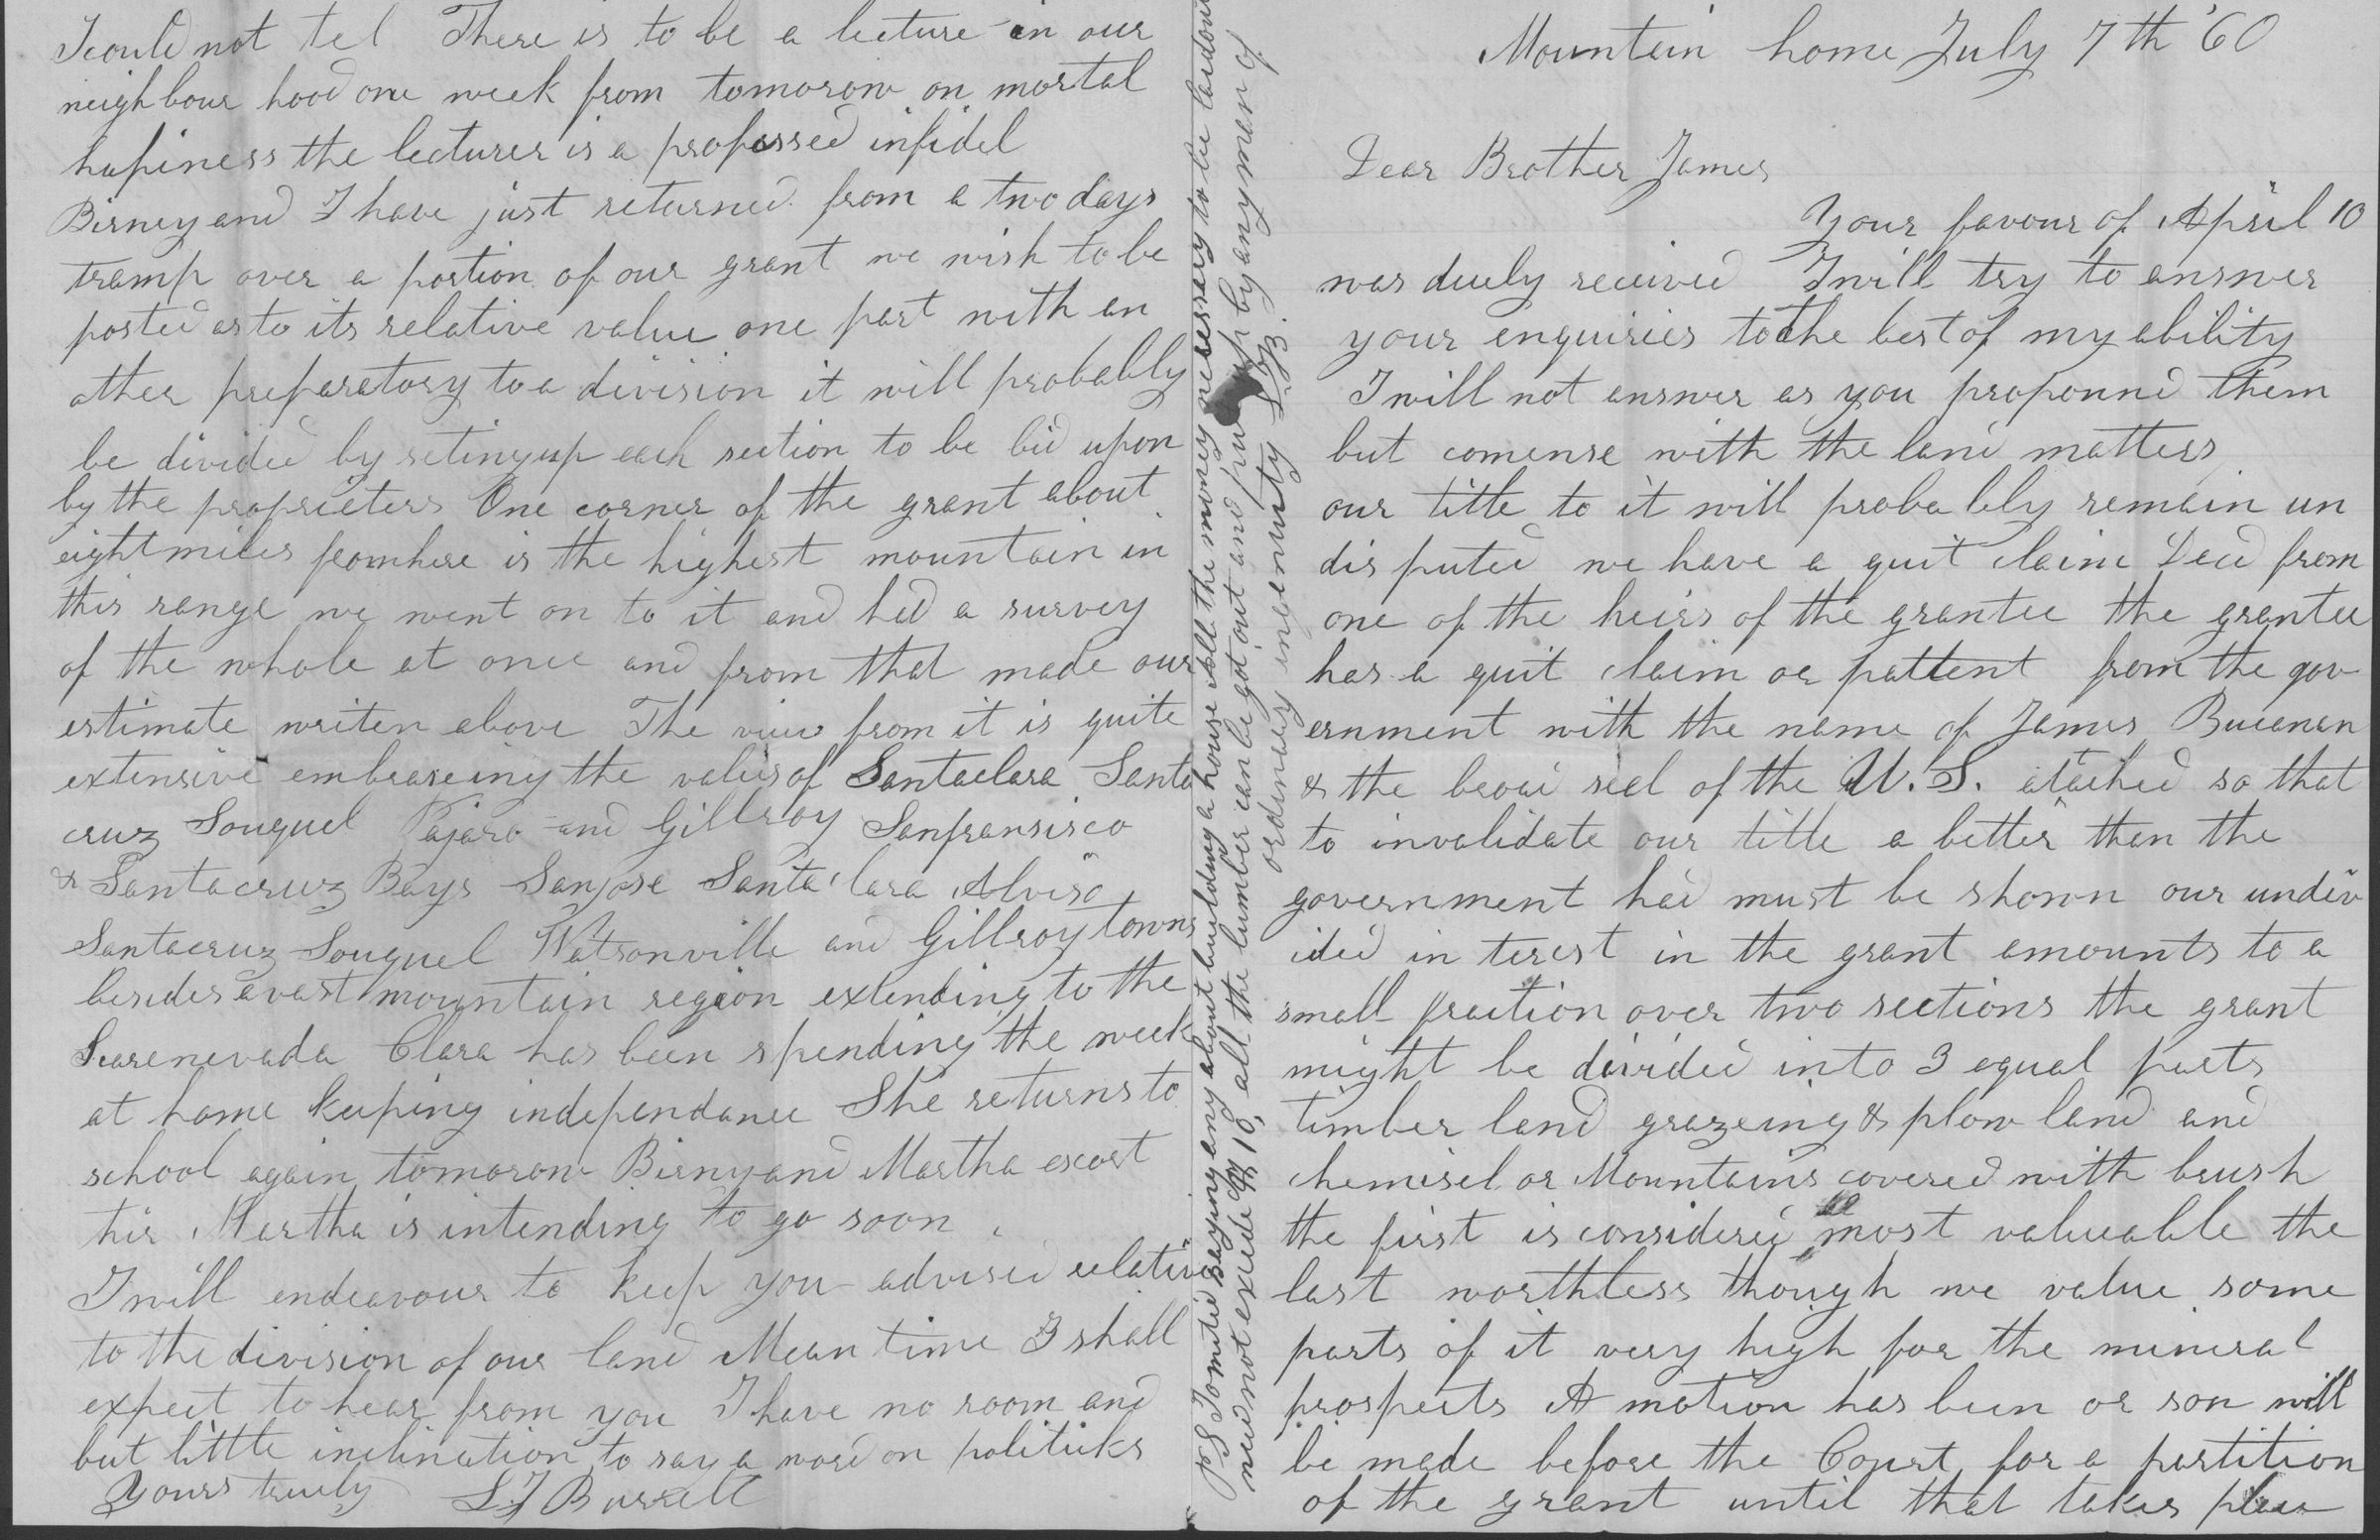 Mountain home July 7th '60
Dear Brother James
Your favour of April 10
was duely received I will try to answer
your enquiries to the best of my ability
I will not answer as you propound them
but comense with the land matters
our title to it will proba bly remain un
disputed we have a quit claim Deed from
one of the heirs of the grantee the grantee
has a quit claim or pattent from the gov
ernment with the name of James Bucanan
& the broad seel of the U.S. atached so that
to invalidate our title a better than the
government had must be shown our undiv
ided in terest in the grant amounts to a
small fraction over two sections the grant
might be divided into 3 equal parts
timber land grazeing & plow land and
chemisel or Mountains covered with brush
the first is considered most valueable the
last worthless though we value some
parts of it very high for the mineral
prospects A motion has been or son will
be made before the Court for a partition
of the grant until that takes place
I could not tel There is to be a lecture in our
neighbour hood one week from tomorow on mortal
hapiness the lecturer is a professed infidel
Birney and I have just returned from a two days
tramp over a portion of our grant we wish to be
posted as to its relative value one part with an
other preparatory to a division it will probably
be divided by seting up each section to be bid upon
by the proprieters One corner of the grant about
eight miles from here is the highest mountain in
this range we went on to it and had a survey
of the whole at once and from that made our
estimate writen above The view from it is quite
extensive embraseing the valies of Santaclara Santa
cruz Souquel Pajaro and Gillroy Sanfransisco
& Santacruz Bays Sanjose Santa clara Alviso
Santacruz Souquel Watsonville and Gillroy towns
besides a vast mountain region extending to the
Searenevada Clara has been spending the week
at home keeping independance She returns to
school again tomorow Birny and Martha escort
her Martha is intending to go soon
I will endeavour to keep you advised relative
to the division of our land Mean time I shall
expect to hear from you I have no room and
but little inclination to say a word on politicks
Yours truely L J Burrell
PS I omited saying any about building a house all the money necessary to be laid out
need not exceed $10, all the lumber can be got out and put up by any men of
ordinary ingenuity L.J.B.